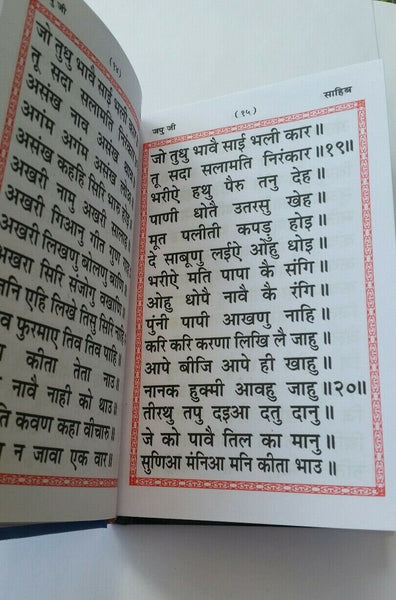 पु जी
(१४)
जो तुधु भावै साई भली कार
तू सदा सलामति निरंकार
असंख नाव
अगंम अगंम असंख
असंख कहहि सिरि भारु
अखरी नामु अखरी सालाह
अखरी गिआनु गीत गुण
अखरी लिखणु बोलणु बाणि
अखरा सिरि संजोगु वखाणि
जिनि एहि लिखे तिसु सिरि नाहि
व फुरमाए तिव तिव पाहि
कीता तेता नाउ
नावै नाही को थाउ॥
ति कवण कहा वीचारु॥
न जावा एक वार॥
जपु जी
(१५)
साहिब
जो तुधु भावै साई भली कार॥
तू सदा सलामति निरंकार॥१९॥
भरीऐ हथु पैरु तनु देह॥
पाणी धोतै उतरसु खेह॥
मूत पलीती कपड़ु होइ॥
दे साबूणु लईऐ ओहु धोइ॥
भरीऐ मति पापा कै संगि॥
ओहु धोपै नावै कै रंगि॥
पुंनी पापी आखणु नाहि॥
करि करि करणा लिखि लै जाहु॥
आपे बीजि आपे ही खाहु॥
नानक हुकमी आवहु जाहु॥२०॥
तीरथु तपु दइआ दतु दानु॥
जे को पावै तिल का मानु॥
सुणिआ मंनिआ मनि कीता भाउ॥